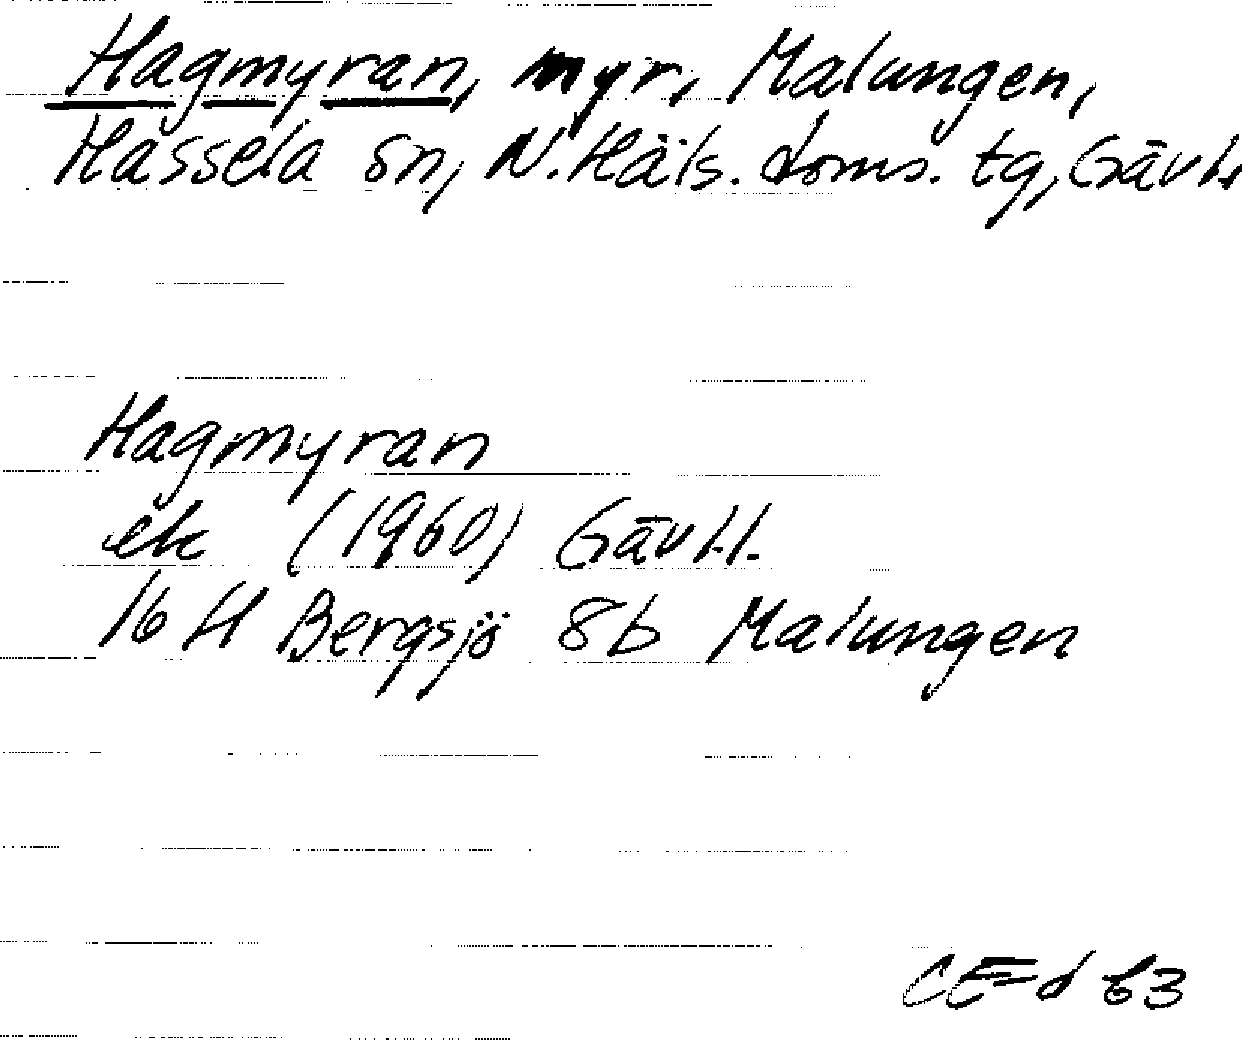 Hagmyran, myr, Malungen,
Hassela sn, N. Häls. doms. tg, Gävl.
Hagmyran
ek (1960) Gävl.l.
16 H Bergsjö 8b Malungen
CE-d 63